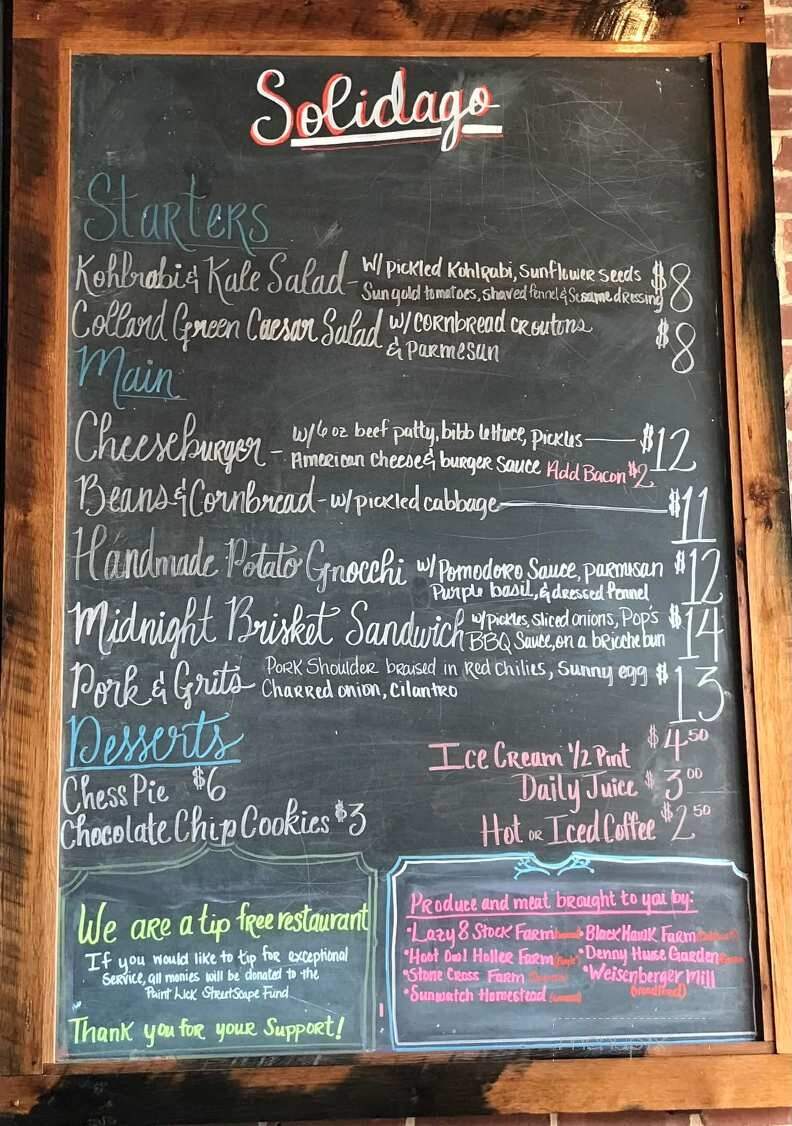 Solidago
Starters
Kohlrabi & Kale Salad - W/ pickled Kohlrabi, Sunflower seeds $8
Sungold tomatoes, shaved fennel & Sesame dressing
Collard Green Caesar Salad w/ cornbread croutons $8
& Parmesan
Main
Cheeseburger - w/ 6 oz beef patty, bibb lettuce, pickles $12
American Cheese & burger Sauce Add Bacon $2
Beans & Cornbread - w/ pickled cabbage $11
Handmade Potato Gnocchi w/ Pomodoro Sauce, parmesan $12
Purple basil, & dressed Fennel
Midnight Brisket Sandwich w/ pickles, sliced onions, Pop's $14
BBQ Sauce, on a brioche bun
Pork & Grits Pork Shoulder braised in Red Chilies, Sunny egg $13
Charred onion, Cilantro
Desserts
Chess Pie $6
Chocolate Chip Cookies $3
Ice Cream 1/2 Pint $4.50
Daily Juice $3.00
Hot or Iced Coffee $2.50
We are a tip free restaurant
If you would like to tip for exceptional
Service, all monies will be donated to the
Paint Lick StreetScape Fund
Thank you for your Support!
Produce and meat brought to you by:
•Lazy 8 Stock Farm
•Hoot Owl Holler Farm
•Stone Cross Farm
•Sunwatch Homestead
•Black Hawk Farm
•Denny House Garden
•Weisenberger Mill